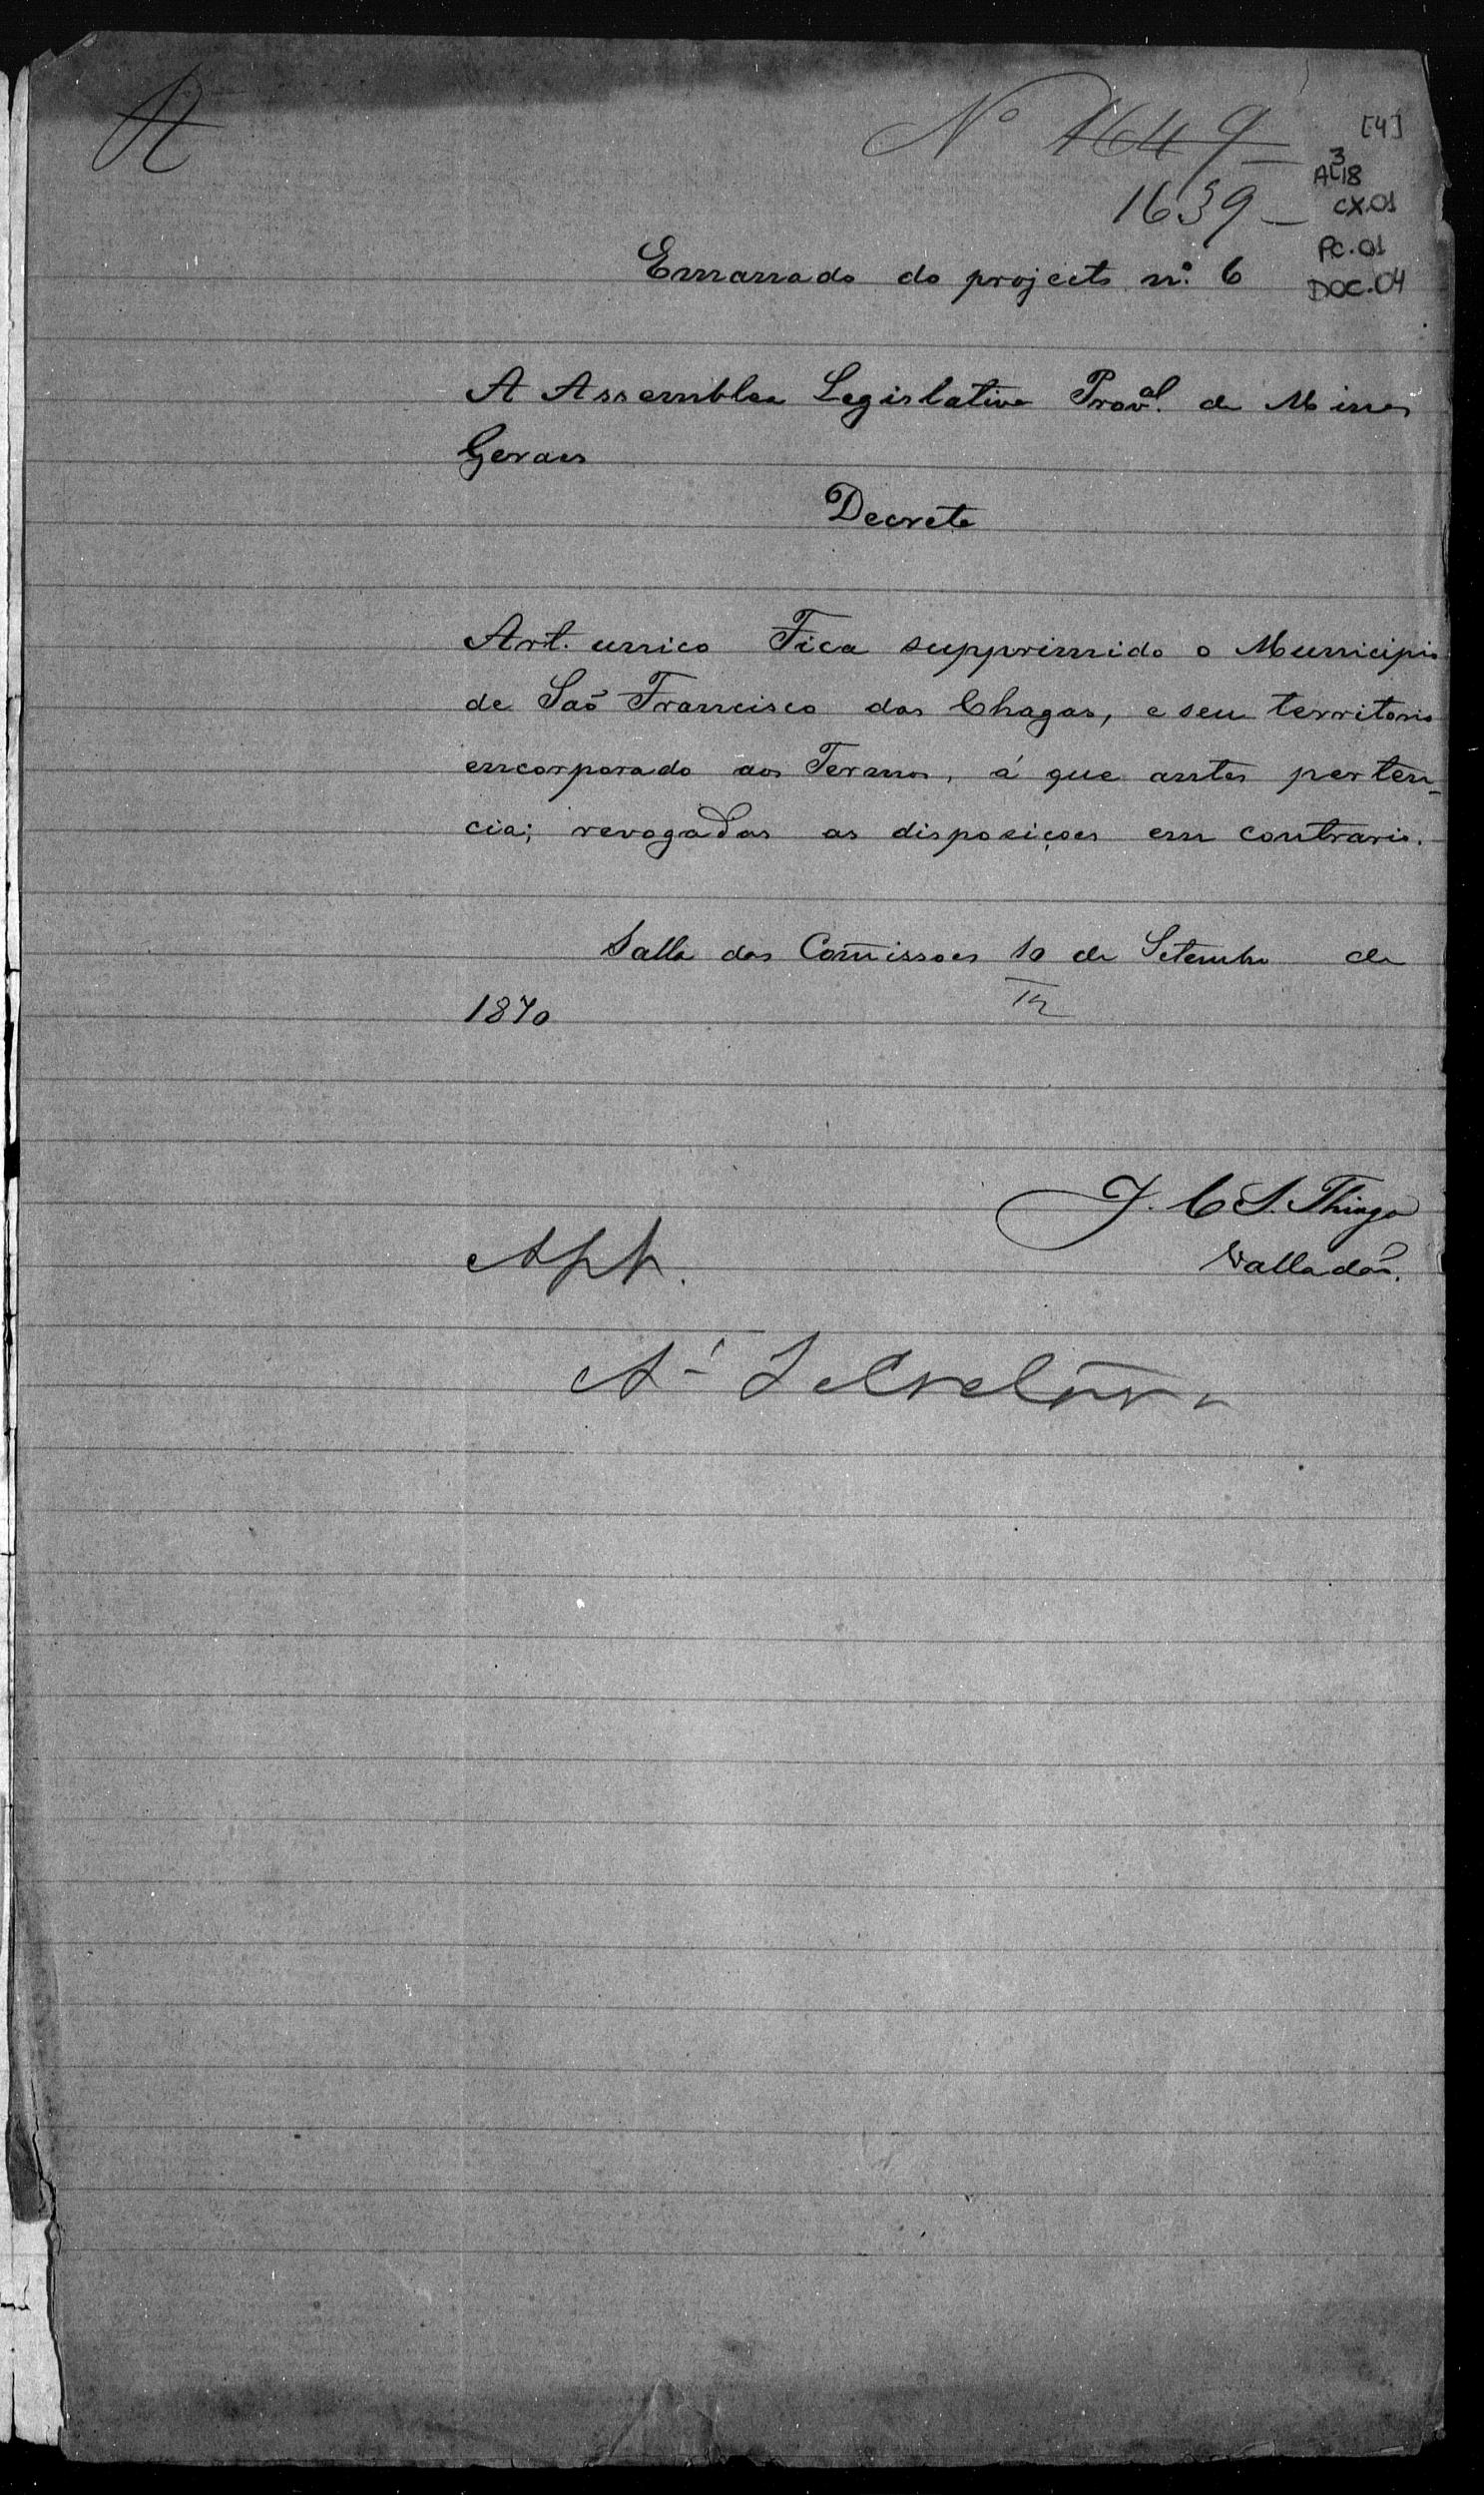 R
Nº 1649
[4]
1639 -
3
AL 18
CX.01
PC.01
DOC.04
Emanado do projecto n.º 6
A Assemblea Legislativa Prov.al de Minas
Geraes
Decreta
Art. unico Fica supprimido o Municipio
de Saõ Francisco das Chagas, e seu territorio
encorporado aos Termos, á que antes perten-
cia; revogadas as disposições em contrario.
Salla das Com̃issoes 10 de Setembro de
1870
J. C S. Thiago
Valladaõ.
App.